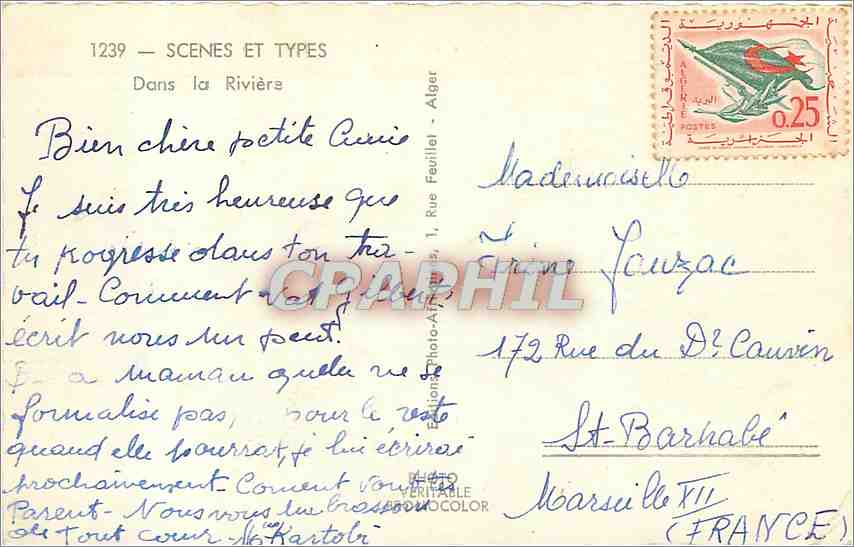 1239 — SCENES ET TYPES
Dans la Rivière
Bien chère petite Annie
Je suis très heureuse que
tu progresse dans ton tra-
vail - Comment va Gilbert,
écrit nous un peut.
a maman quelle ne se
formalise pas, pour le reste
quand elle pourrat, je lui écrirai
prochainement - Coment vont tes
Parent - Nous vous embrassons
de tout coeur - Kartobi
Editions Photo-Africaines, 1, Rue Feuillet - Alger
PHOTO
VERITABLE
PHOTOCOLOR
CPARPHIL
الجمهورية
الجزائرية
الديموقراطية
الشعبية
البريد
ALGERIE
POSTES
0.25
Mademoiselle
Jouzac
172 Rue du Dr. Cauvin
St-Barnabé
Marseille XII
(FRANCE)